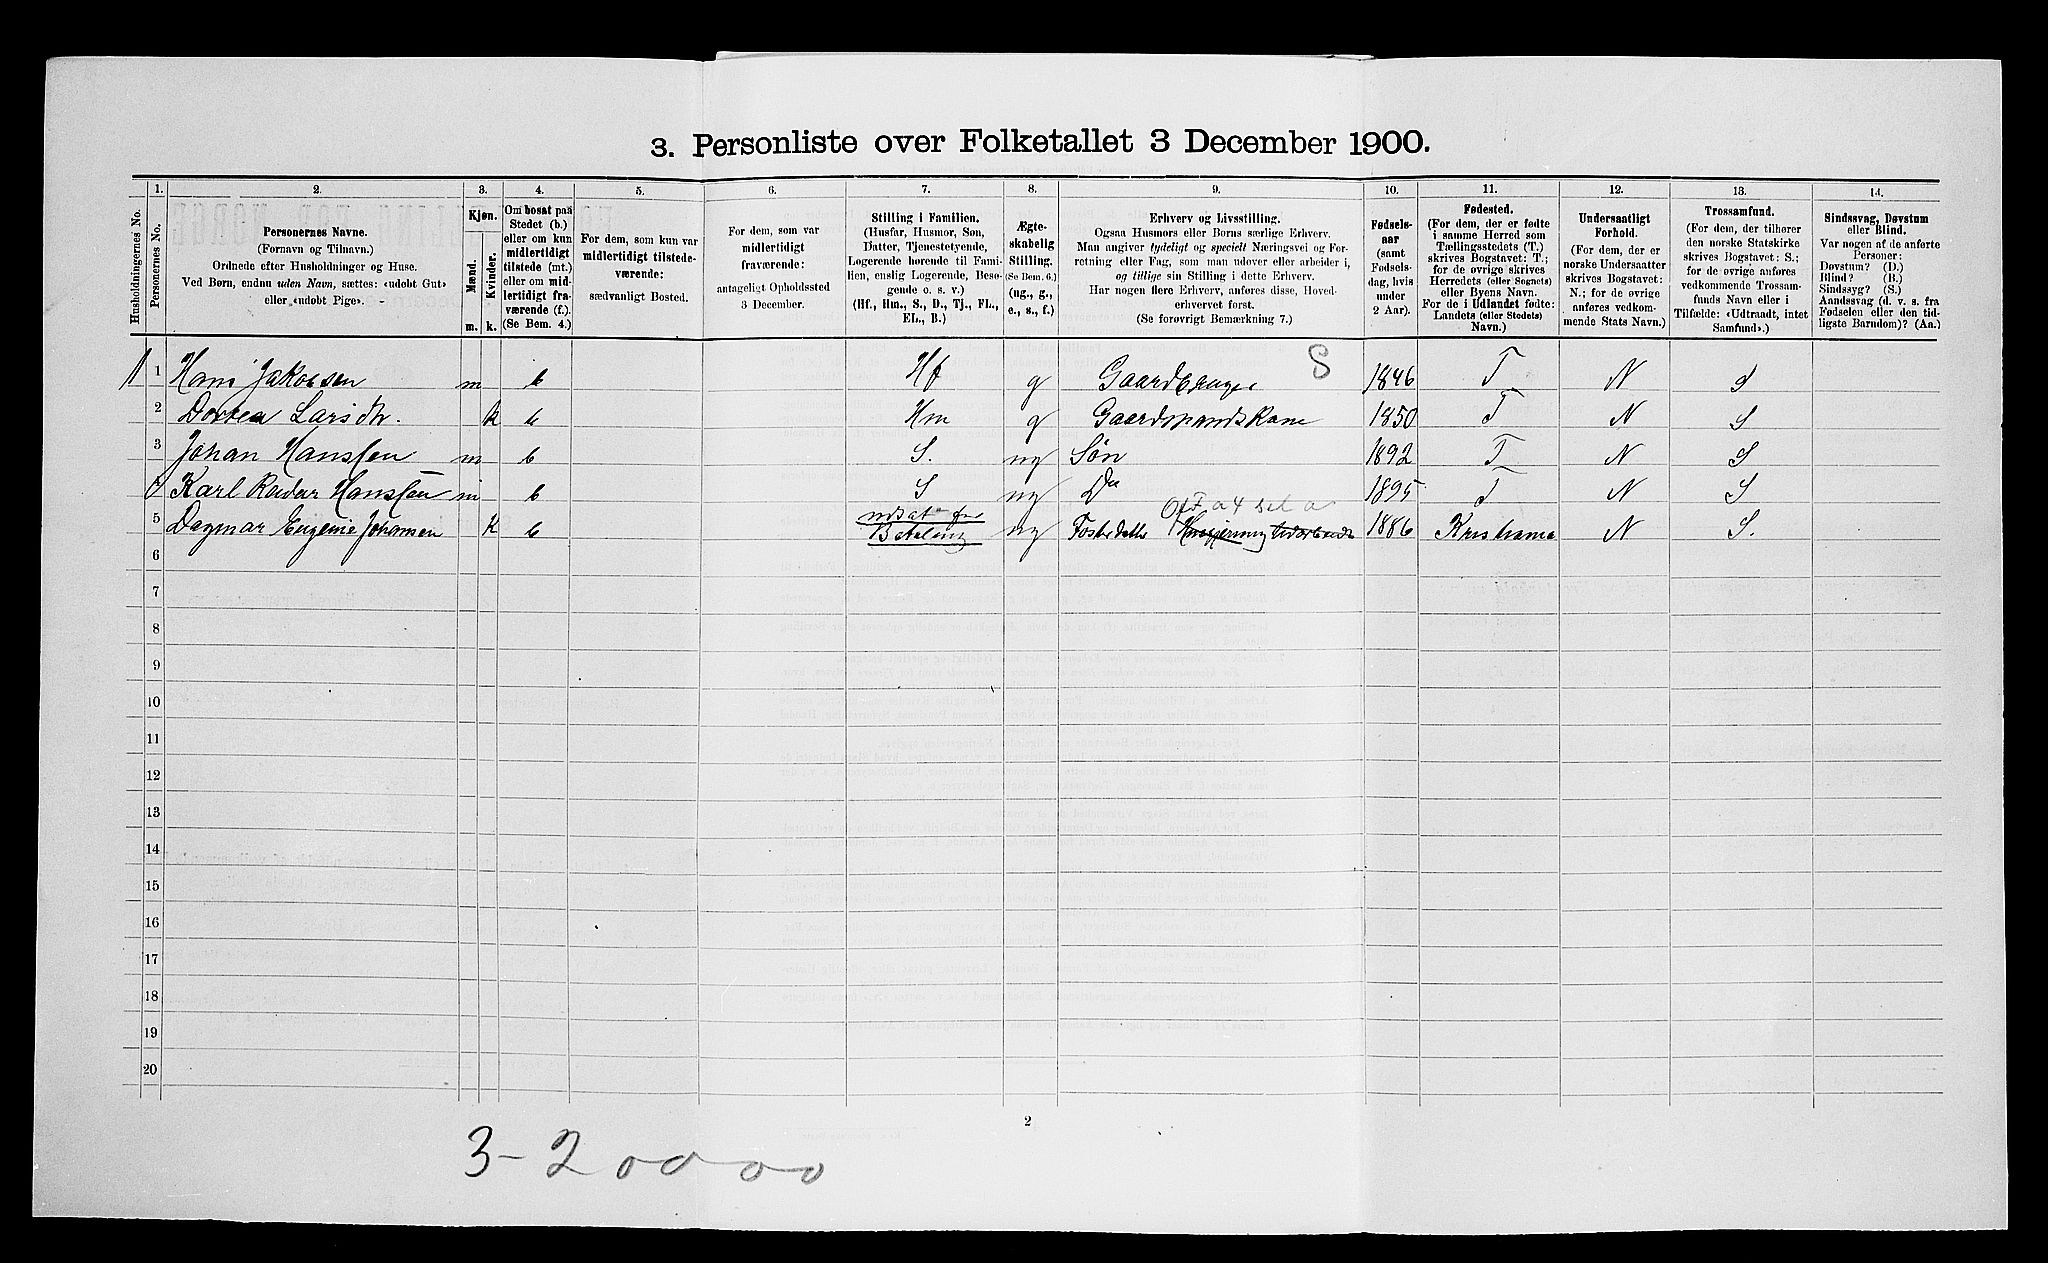 3. Personliste over Folketallet 3 December 1900.
1. 2. 3. 4. 5. 6. 7. 8. 9. 10. 11. 12. 13. 14.
Husholdningernes No.
Personernes No.
Personernes Navne.
(Fornavn og Tilnavn.)
Ordnede efter Husholdninger og Huse.
Ved Børn, endnu uden Navn, sættes: «udobt Gut»
eller «udobt Pige».
Kjøn.
Mænd.
Kvinder.
m. k.
Om bosat paa
Stedet (b.)
eller om kun
midlertidigt
tilstede (mt.)
eller om mid-
lertidigt fra-
værende (f.).
(Se Bem. 4.)
For dem, som kun var
midlertidigt tilstede-
værende:
sædvanligt Bosted.
For dem, som var
midlertidigt
fraværende:
antageligt Opholdssted
3 December.
Stilling i Familien.
(Husfar, Husmor, Søn,
Datter, Tjenestetyende,
Logerende hørende til Fami-
lien, enslig Logerende, Besø-
gende o. s. v.)
(Hf., Hm., S., D., Tj., FL.,
EL., B.)
Ægte-
skabelig
Stilling.
(Se Bem. 6.)
(ug., g.,
e., s., f.)
Erhverv og Livsstilling.
Ogsaa Husmors eller Børns særlige Erhverv.
Man angiver tydeligt og specielt Næringsvei og For-
retning eller Fag, som man udover eller arbeider i,
og tillige sin Stilling i dette Erhverv.
Har nogen flere Erhverv, anføres disse, Hoved-
erhvervet forst.
(Se forøvrigt Bemærkning 7.)
Fødsels-
aar
(samt
Fødsels-
dag, hvis
under
2 Aar).
Fødested.
(For dem, der er fødte
i samme Herred som
Tællingsstedets (T.)
skrives Bogstavet: T.;
for de øvrige skrives
Herredets (eller Sognets)
eller Byens Navn.
For de i Udlandet fødte:
Landets (eller Stedets)
Navn.)
Undersaatligt
Forhold.
(For dem, der er
norske Undersaatter
skrives Bogstavet:
N.; for de øvrige
anføres vedkom-
mende Stats Navn.)
Trossamfund.
(For dem, der tilhører
den norske Statskirke
skrives Bogstavet: S.;
for de øvrige anføres
vedkommende Trossam-
funds Navn eller i
Tilfælde: «Udtraadt, intet
Samfund».)
Sindssvag, Døvstum
eller Blind.
Var nogen af de anførte
Personer:
Døvstum? (D.)
Blind? (B.)
Sindssyg? (S.)
Aandssvag (d. v. s. fra
Fødselen eller den tid-
ligste Barndom)? (Aa.)
S
1 1 Hans Jakobsen m b Hf g Gaardbruger 1846 T N S
2 Dortea Larsdtr. k b Hm g Gaardmandskone 1850 T N S
3 Johan Hanssen m b S. ug Søn 1892 T N S
4 Karl Reidar Hanssen m b S ug Do 1895 T N S
5 Dagmar Eugenie Johansen k b Betaling ug Fosterdatter 1886 Kristiania N S.
6
7
8
9
10
11
12
13
14
15
16
17
18
19
20
2
3-20000